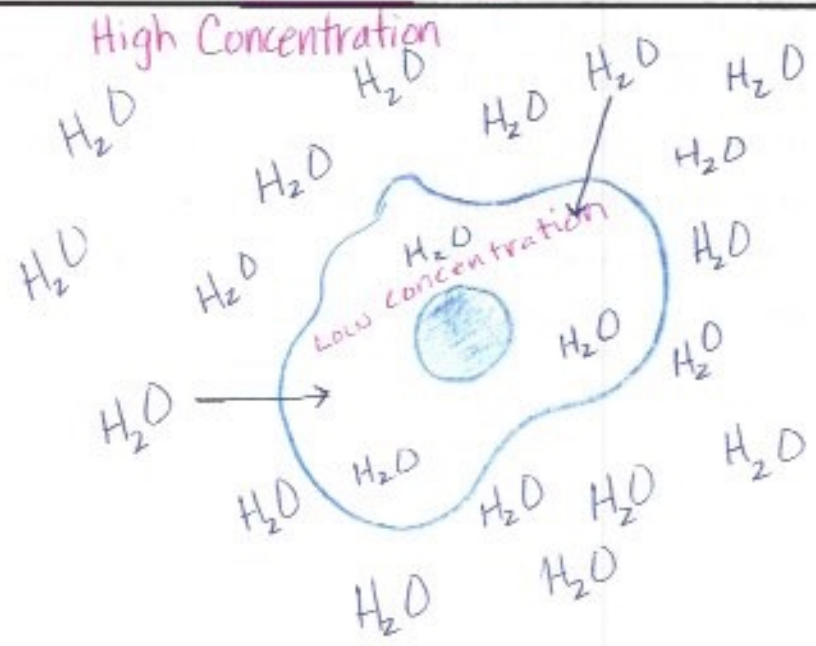 High Concentration
H₂O
H₂O
H₂O
H₂O
H₂O
H₂O
H₂O
H₂O
H₂O
H₂O
H₂O
H₂O
Low concentration
H₂O
H₂O
H₂O
H₂O
H₂O
H₂O
H₂O
H₂O
H₂O
H₂O